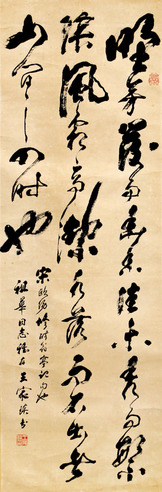 野芳發而幽香佳木秀而繁
陰風霜高潔水落而石出者
山間之四時也
宋歐陽修醉翁亭記句也
祖華同志